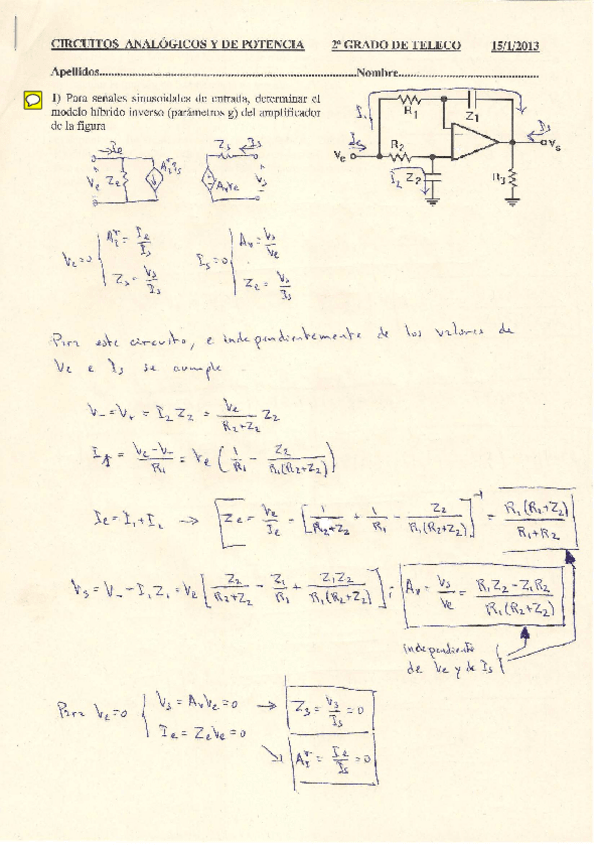 CIRCUITOS ANALÓGICOS Y DE POTENCIA 2º GRADO DE TELECO 15/1/2013
Apellidos......................................................Nombre..............................
1) Para señales sinusoidales de entrada, determinar el
modelo híbrido inverso (parámetros g) del amplificador
de la figura
R₁ Z₁
I₁
Ie Is
Ve R₂ vs
I₂ Z₂ R₃
Ie Zs Is
Ve Ze AᵢʳIs AvVe Vs
Ve=0 { Aᵢʳ = Ie/Is
Zs = Vs/Is
Is=0 | Av = Vs/Ve
Ze = Vs/Is
Para este circuito, e independientemente de los valores de
Ve e Is se cumple
V₋ = V₊ = I₂ Z₂ = Ve/(R₂+Z₂) Z₂
I₁ = (Ve-V₋)/R₁ = Ve (1/R₁ - Z₂/(R₁(R₂+Z₂)))
Ie = I₁+I₂ → Ze = Ve/Ie = [1/(R₂+Z₂) + 1/R₁ - Z₂/(R₁(R₂+Z₂))]⁻¹ = R₁(R₂+Z₂)/(R₁+R₂)
Vs = V₋ - I₁Z₁ = Ve [Z₂/(R₂+Z₂) - Z₁/R₁ + Z₁Z₂/(R₁(R₂+Z₂))] ; Av = Vs/Ve = (R₁Z₂-Z₁R₂)/(R₁(R₂+Z₂))
independiente
de Ve y de Is
Para Ve=0 { Vs = AvVe = 0 → Zs = Vs/Is = 0
Ie = ZeVe = 0 → Aᵢʳ = Ie/Is = 0